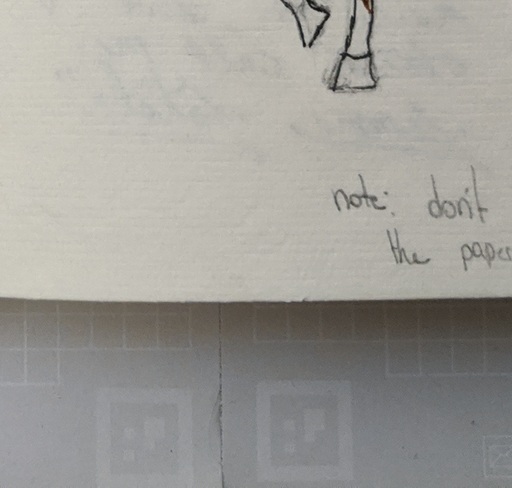 note: don't
the paper